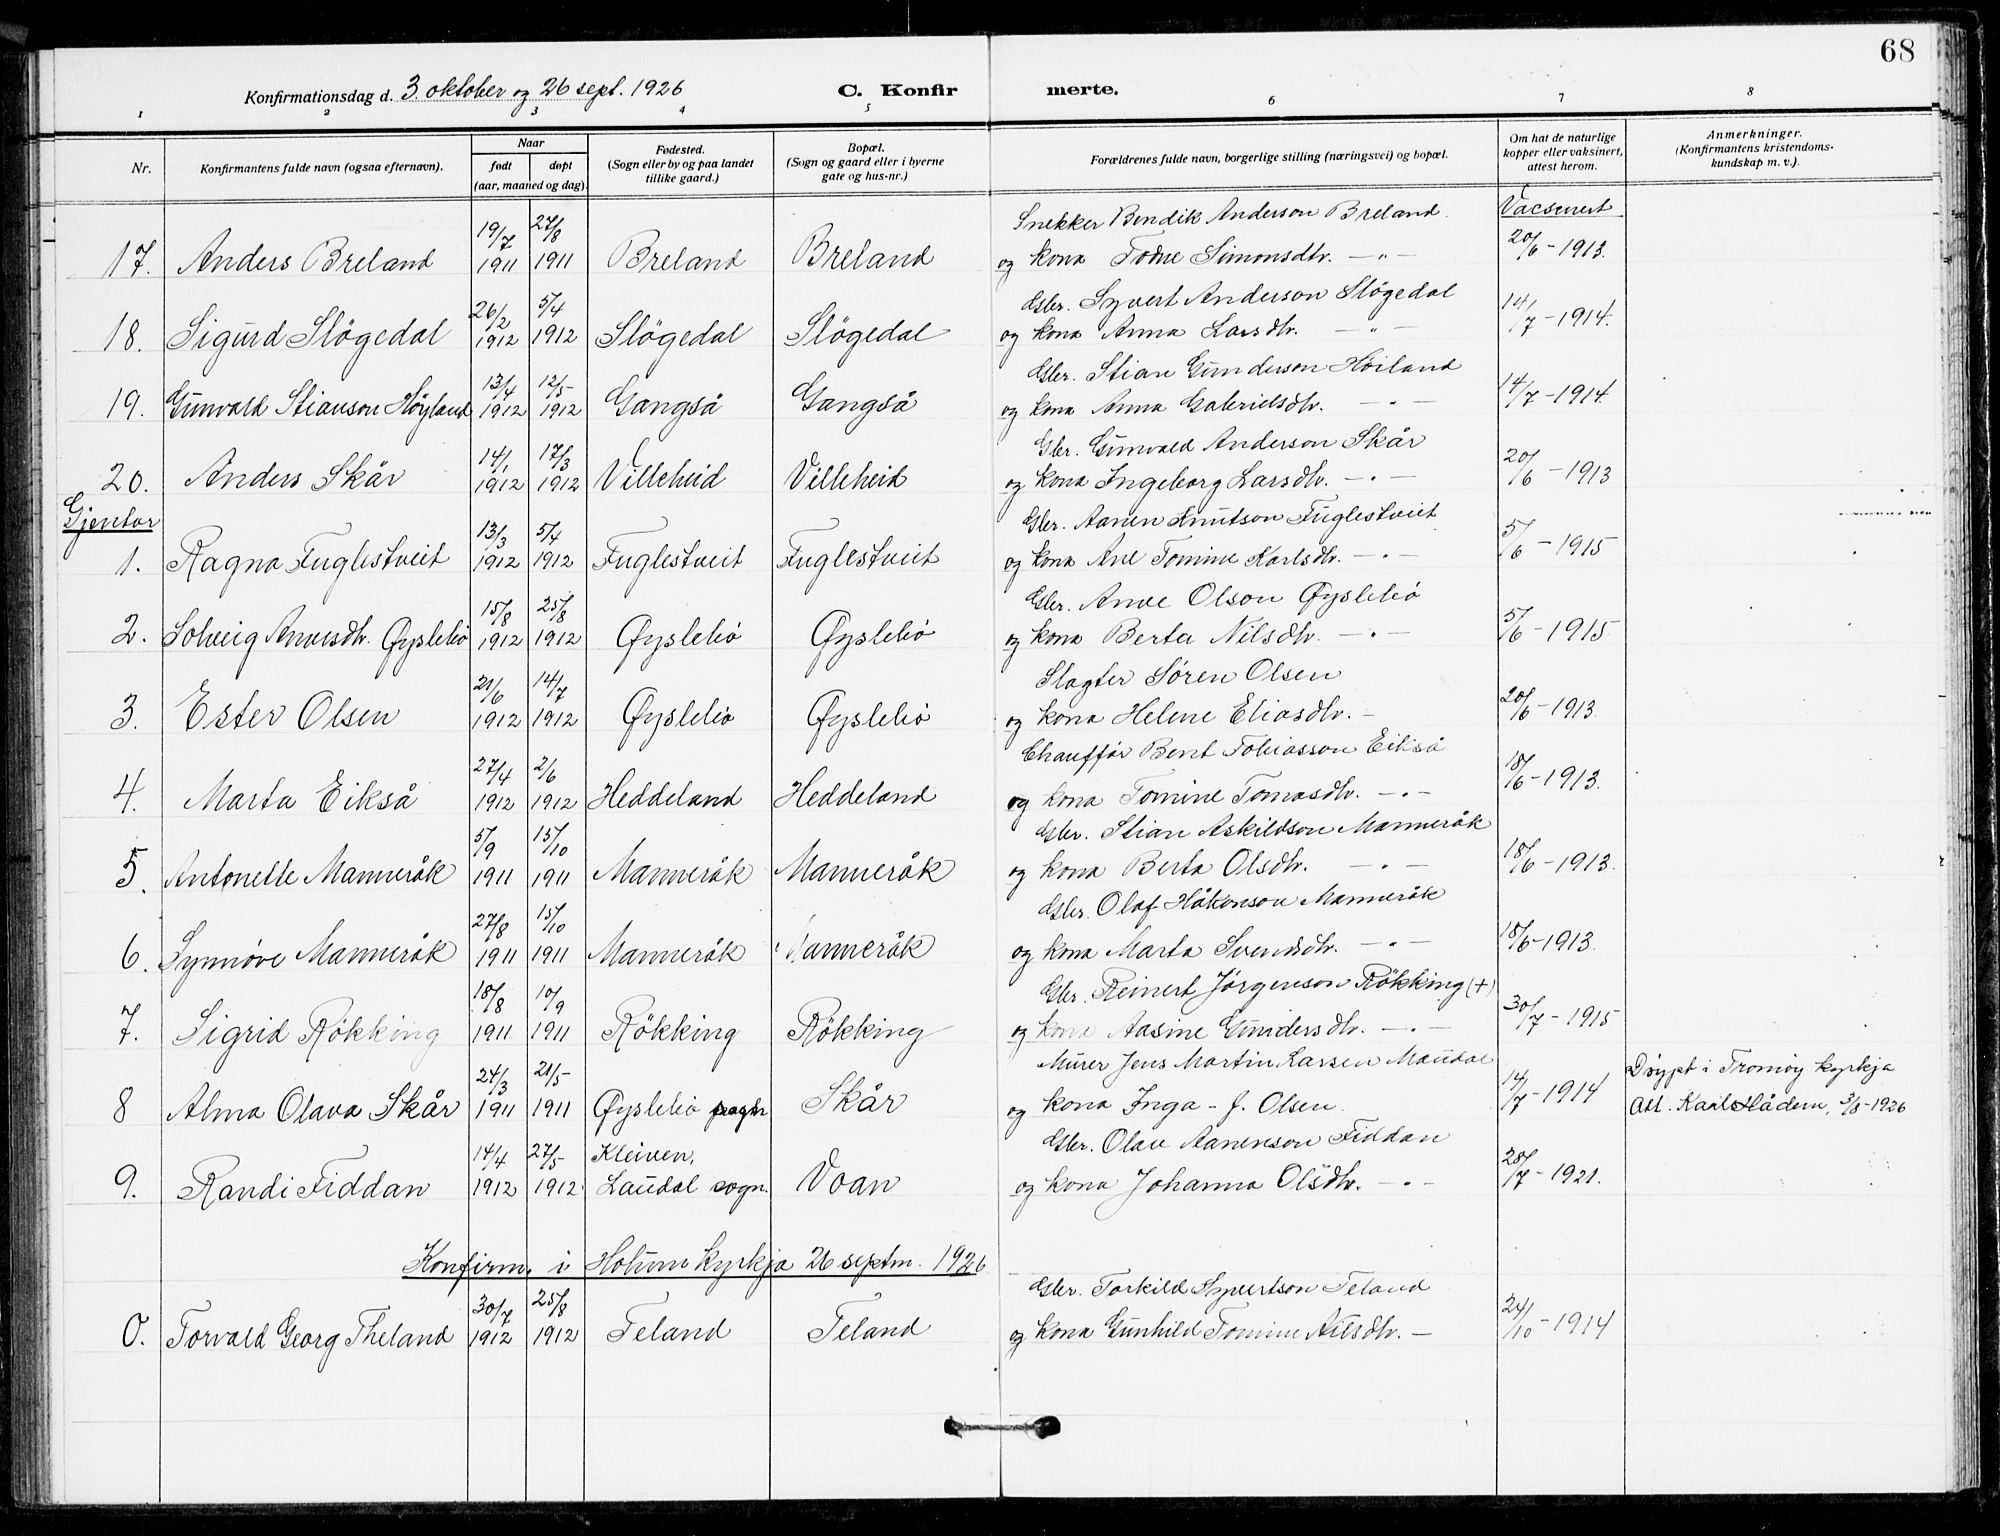 68
Konfirmationsdag d. 3. oktober og 26 sept. 1926 C. Konfir merte.
1 2 3 4 5 6 7 8
Nr. Konfirmantens fulde navn (ogsaa efternavn). Naar født døpt (aar, maaned og dag). Fødested. (Sogn eller by og paa landet tillike gaard.) Bopæl. (Sogn og gaard eller i byerne gate og hus-nr.) Forældrenes fulde navn, borgerlige stilling (næringsvei) og bopæl. Om hat de naturlige kopper eller vaksinert, attest herom. Anmerkninger. (Konfirmantens kristendoms- kundskap m. v.).
19/7 27/8 Snekker Bendik Anderson Breland Vacsinert
17. Anders Breland 1911 1911 Breland Breland og kona Todne Simonsdtr. — " — 20/6 - 1913.
26/2 5/4 Gbr. Syvert Anderson Sløgedal
18. Sigurd Sløgedal 1912 1912 Sløgedal Sløgedal og kona Anna Larsdtr. — " — 14/7 - 1914.
13/4 12/5 Gbr. Stian Gunderson Høiland
19. Gunvald Stianson Høyland 1912 1912 Gangså Gangså og kona Anna Gabrielsdtr. — " — 14/7 - 1914.
14/1 17/3 Gbr. Gunvald Anderson Skår
20. Anders Skår 1912 1912 Villeheid Villeheid og kona Ingeborg Larsdtr. — " — 20/6 - 1913
Gjentor
13/3 5/4 Gbr. Aanen Knutson Fuglestveit
1. Ragna Fuglestveit 1912 1912 Fuglestveit Fuglestveit og kona Ane Tomine Karlsdtr. — " — 5/6 - 1915
15/8 25/8 Gbr. Anve Olson Øyslebø
2. Solveig Anvesdtr. Øyslebø 1912 1912 Øyslebø Øyslebø og kona Berta Nilsdtr. — " — 5/6 - 1915
21/6 14/7 Slagter Søren Olsen
3. Ester Olsen 1912 1912 Øyslebø Øyslebø og kona Helene Eliasdtr. — 20/6 - 1913.
27/4 2/6 Chauffør Bent Tobiasson Eikså
4. Marta Eikså 1912 1912 Heddeland Heddeland og kona Tomine Tomasdtr. — " — 18/6 - 1913.
5/9 15/10 Gbr. Stian Askildson Manneråk
5. Antonette Manneråk 1911 1911 Manneråk Manneråk og kona Berta Olsdtr. — " — 18/6 - 1913.
27/8 15/10 Gbr. Olaf Håkonson Mannråk
6. Synnøve Mannråk 1911 1911 Mannråk Mannråk og kona Marta Svendsdtr. — " — 18/6 - 1913.
18/8 10/9 Gbr. Reinert Jørgenson Røkking (+)
7. Sigrid Røkking 1911 1911 Røkking Røkking og kona Aasine Gundersdtr. — " — 30/7 - 1915
24/3 21/5 Murer Jens Martin Larsen Maudal Døypt i Tromøy kyrkja
8 Alma Olava Skår 1911 1911 Øyslebø sogn Skår og kona Inga - f. Olsen 14/7 - 1914 Att. Karl Hådem, 3/8 - 1926
14/4 27/5 Kleiven, Gbr. Olav Aanenson Fiddan
9. Randi Fiddan 1912 1912 Laudal sogn. Voan og kona Johanna Olsdtr. — " — 28/7 - 1921.
Konfirm. i Holum kyrkja 26 septm. 1926
30/7 25/8 Gbr. Torkild Syvertson Teland
0. Torvald Georg Theland 1912 1912 Teland Teland og kona Gunhild Tomine Nilsdtr. — 24/10 - 1914